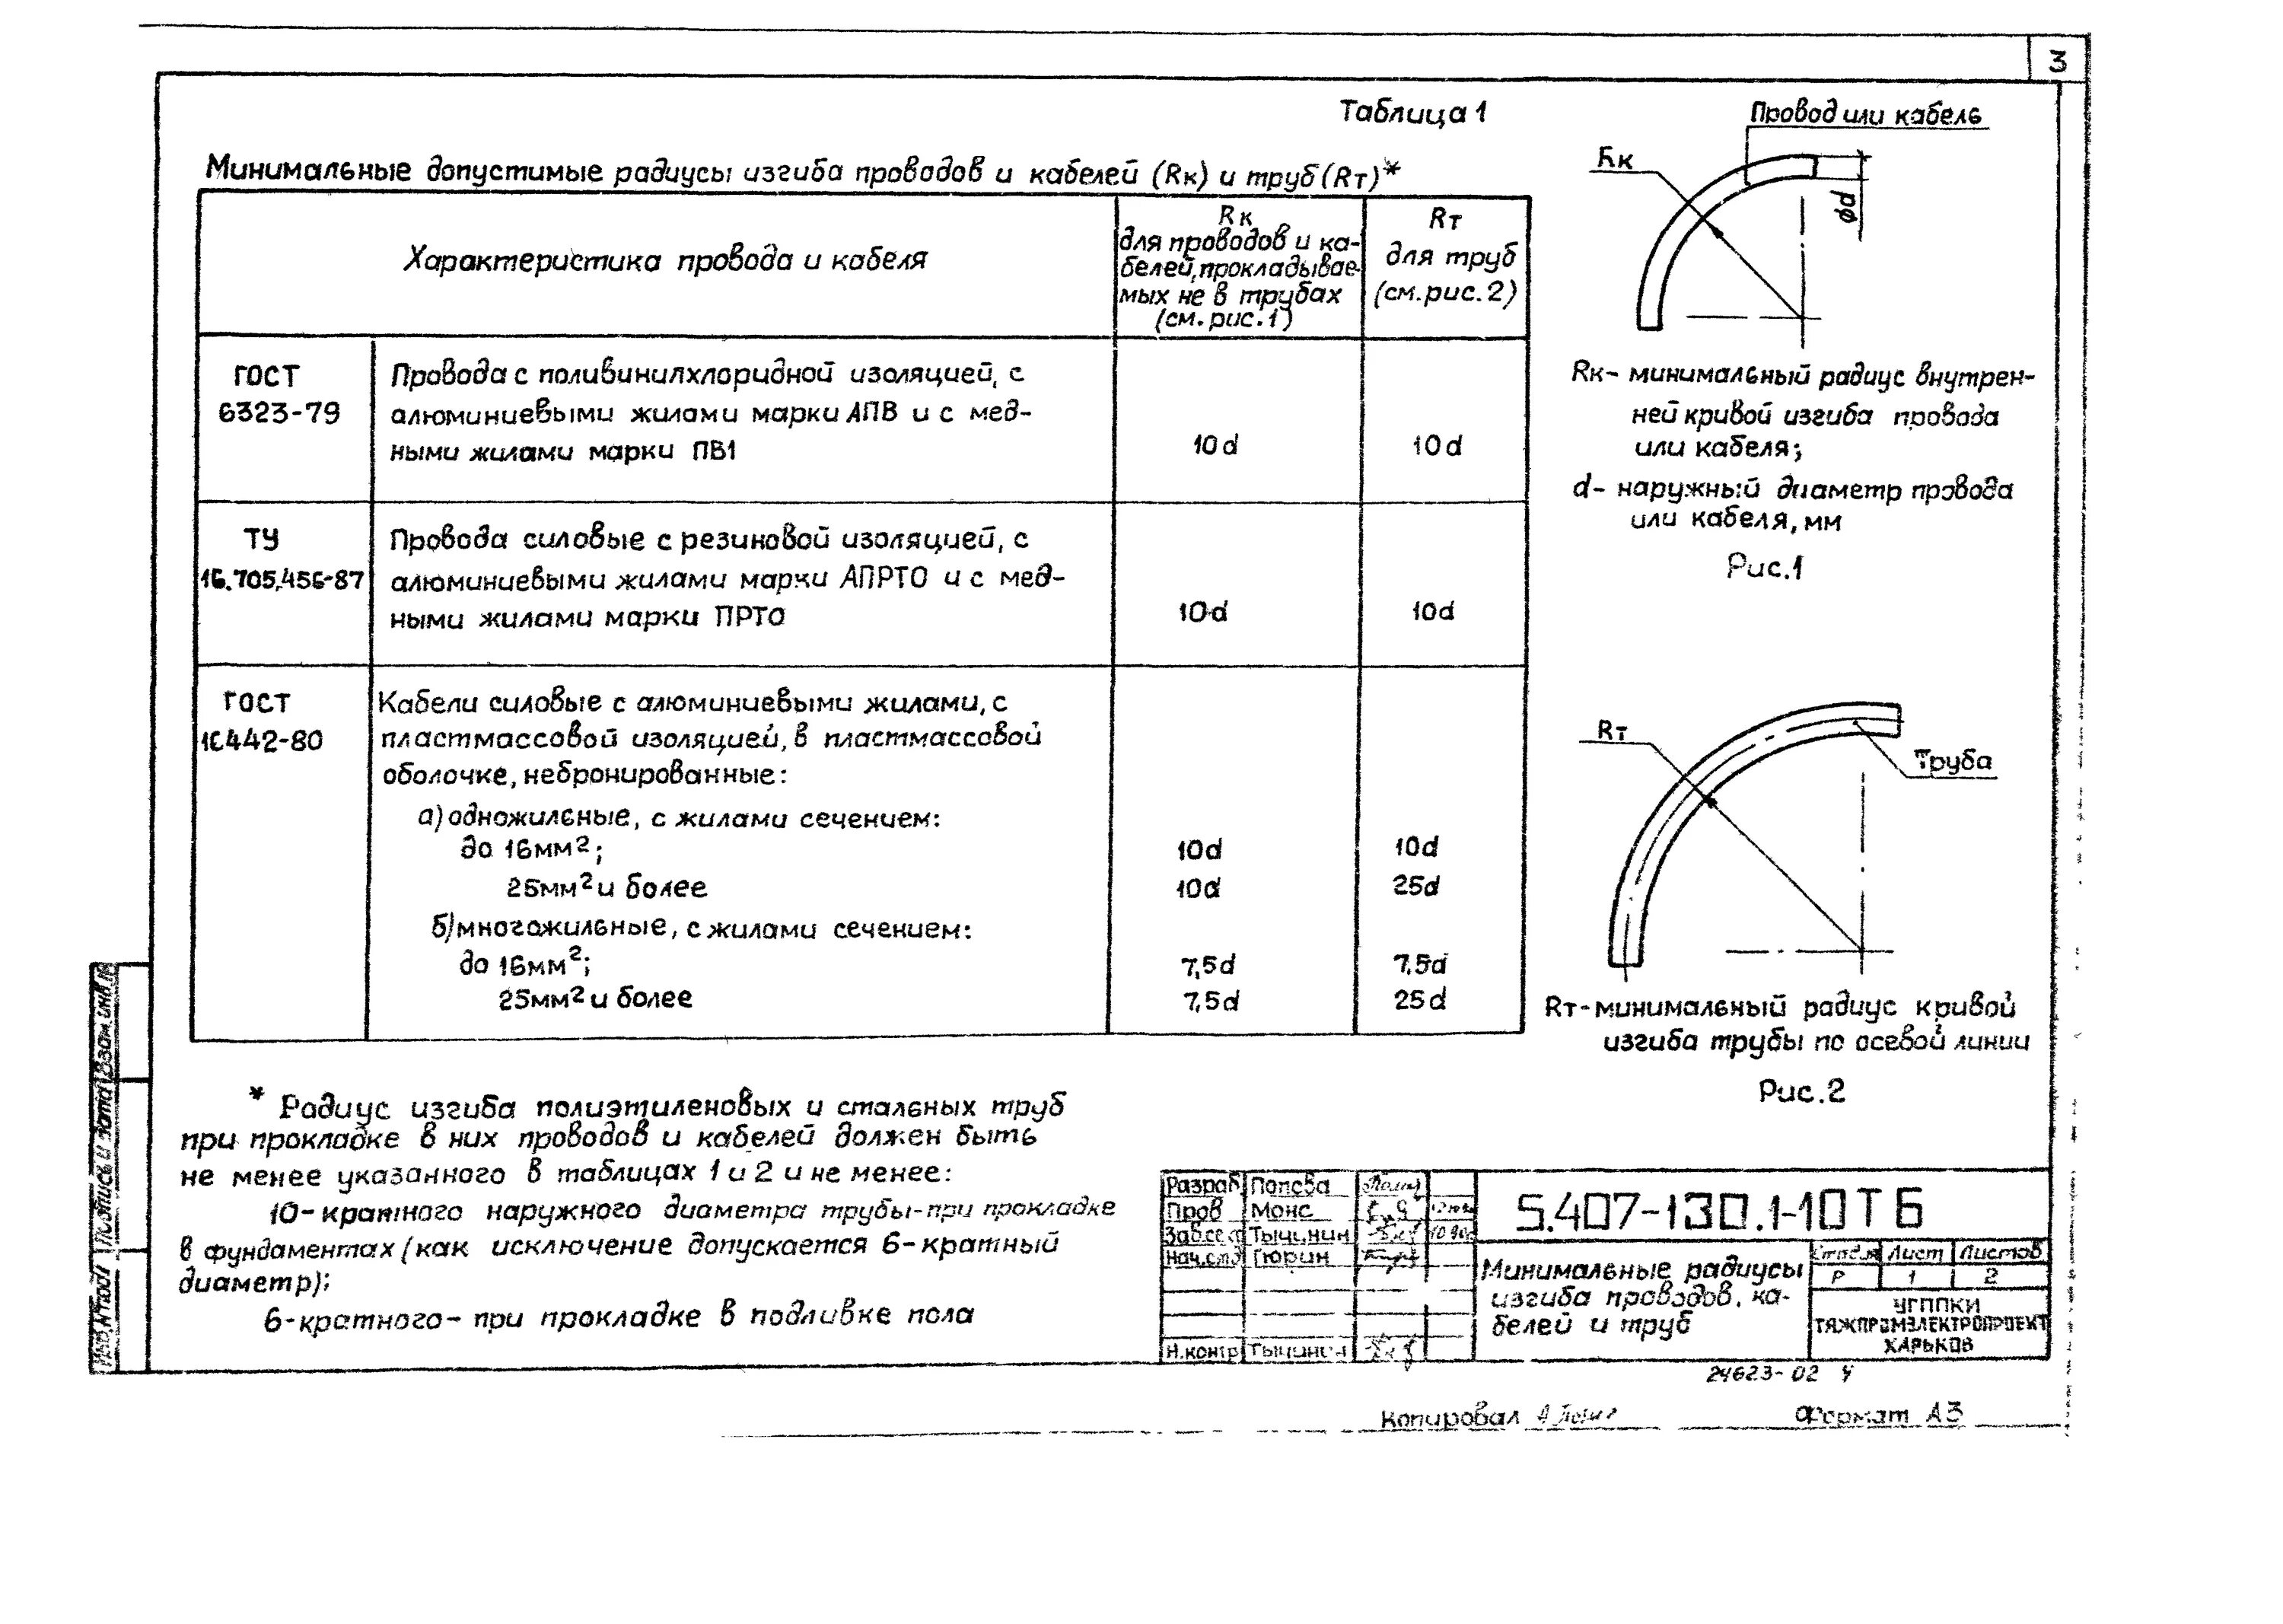 3
Таблица 1
Минимальные допустимые радиусы изгиба проводов и кабелей (Rк) и труб (Rт)*
Характеристика провода и кабеля
Rк
для проводов и ка-
белей, прокладывае-
мых не в трубах
(см. рис. 1)
Rт
для труб
(см. рис. 2)
ГОСТ
6323-79
Провода с поливинилхлоридной изоляцией, с
алюминиевыми жилами марки АПВ и с мед-
ными жилами марки ПВ1
10d
10d
ТУ
16.705.456-87
Провода силовые с резиновой изоляцией, с
алюминиевыми жилами марки АПРТО и с мед-
ными жилами марки ПРТО
10d
10d
ГОСТ
16442-80
Кабели силовые с алюминиевыми жилами, с
пластмассовой изоляцией, в пластмассовой
оболочке, небронированные:
а) одножильные, с жилами сечением:
до 16мм²; 10d 10d
25мм² и более 10d 25d
б) многожильные, с жилами сечением:
до 16мм²; 7,5d 7,5d
25мм² и более 7,5d 25d
Провод или кабель
Rк
ϕd
Rк- минимальный радиус внутрен-
ней кривой изгиба провода
или кабеля;
d- наружный диаметр провода
или кабеля, мм
Рис.1
Rт
Труба
Rт-минимальный радиус кривой
изгиба трубы по осевой линии
Рис.2
* Радиус изгиба полиэтиленовых и стальных труб
при прокладке в них проводов и кабелей должен быть
не менее указанного в таблицах 1 и 2 и не менее:
10-кратного наружного диаметра трубы-при прокладке
в фундаментах (как исключение допускается 6-кратный
диаметр);
6-кратного- при прокладке в подливке пола
Инв.№ подл Подпись и дата Взам.инв.№
Разраб Попова
Пров Монс
Зав.сек Тычинин
Нач.отд Тюрин
Н.контр Тычинин
5.407-130.1-10ТБ
Минимальные радиусы
изгиба проводов, ка-
белей и труб
Стадия Лист Листов
Р 1 2
УГППКИ
ТЯЖПРОМЭЛЕКТРОПРОЕКТ
ХАРЬКОВ
24623-02 4
Копировал
Формат А3